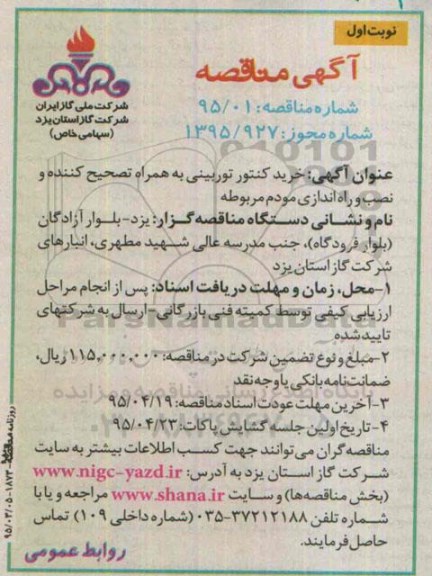 نوبت اول
آگهی مناقصه
شرکت ملی گاز ایران
شرکت گاز استان یزد
(سهامی خاص)
شماره مناقصه: ۹۵/۰۱
شماره مجوز: ۱۳۹۵/۹۲۷
عنوان آگهی: خرید کنتور توربینی به همراه تصحیح کننده و
نصب و راه اندازی مودم مربوطه
نام و نشانی دستگاه مناقصه گزار: یزد- بلوار آزادگان
(بلوار فرودگاه)، جنب مدرسه عالی شهید مطهری، انبارهای
شرکت گاز استان یزد
۱-محل، زمان و مهلت دریافت اسناد: پس از انجام مراحل
ارزیابی کیفی توسط کمیته فنی بازرگانی- ارسال به شرکتهای
تایید شده
۲-مبلغ و نوع تضمین شرکت در مناقصه: ۱۱۵,۰۰۰,۰۰۰ ریال،
ضمانت نامه بانکی یا وجه نقد
۳-آخرین مهلت عودت اسناد مناقصه: ۹۵/۰۴/۱۹
۴-تاریخ اولین جلسه گشایش پاکات: ۹۵/۰۴/۲۳
مناقصه گران می توانند جهت کسب اطلاعات بیشتر به سایت
شرکت گاز استان یزد به آدرس: www.nigc-yazd.ir
(بخش مناقصه ها) و سایت www.shana.ir مراجعه و یا با
شماره تلفن ۳۷۲۱۲۱۸۸-۰۳۵ (شماره داخلی ۱۰۹) تماس
حاصل فرمایند.
روابط عمومی
ParsNamadData